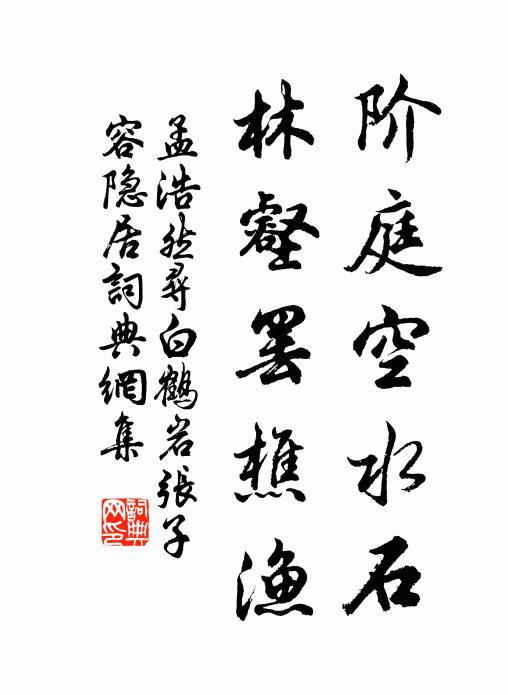 阶庭空水石
林壑罢樵渔
孟浩然寻白鹤岩張子
容隐居詞典網集
詞典网印